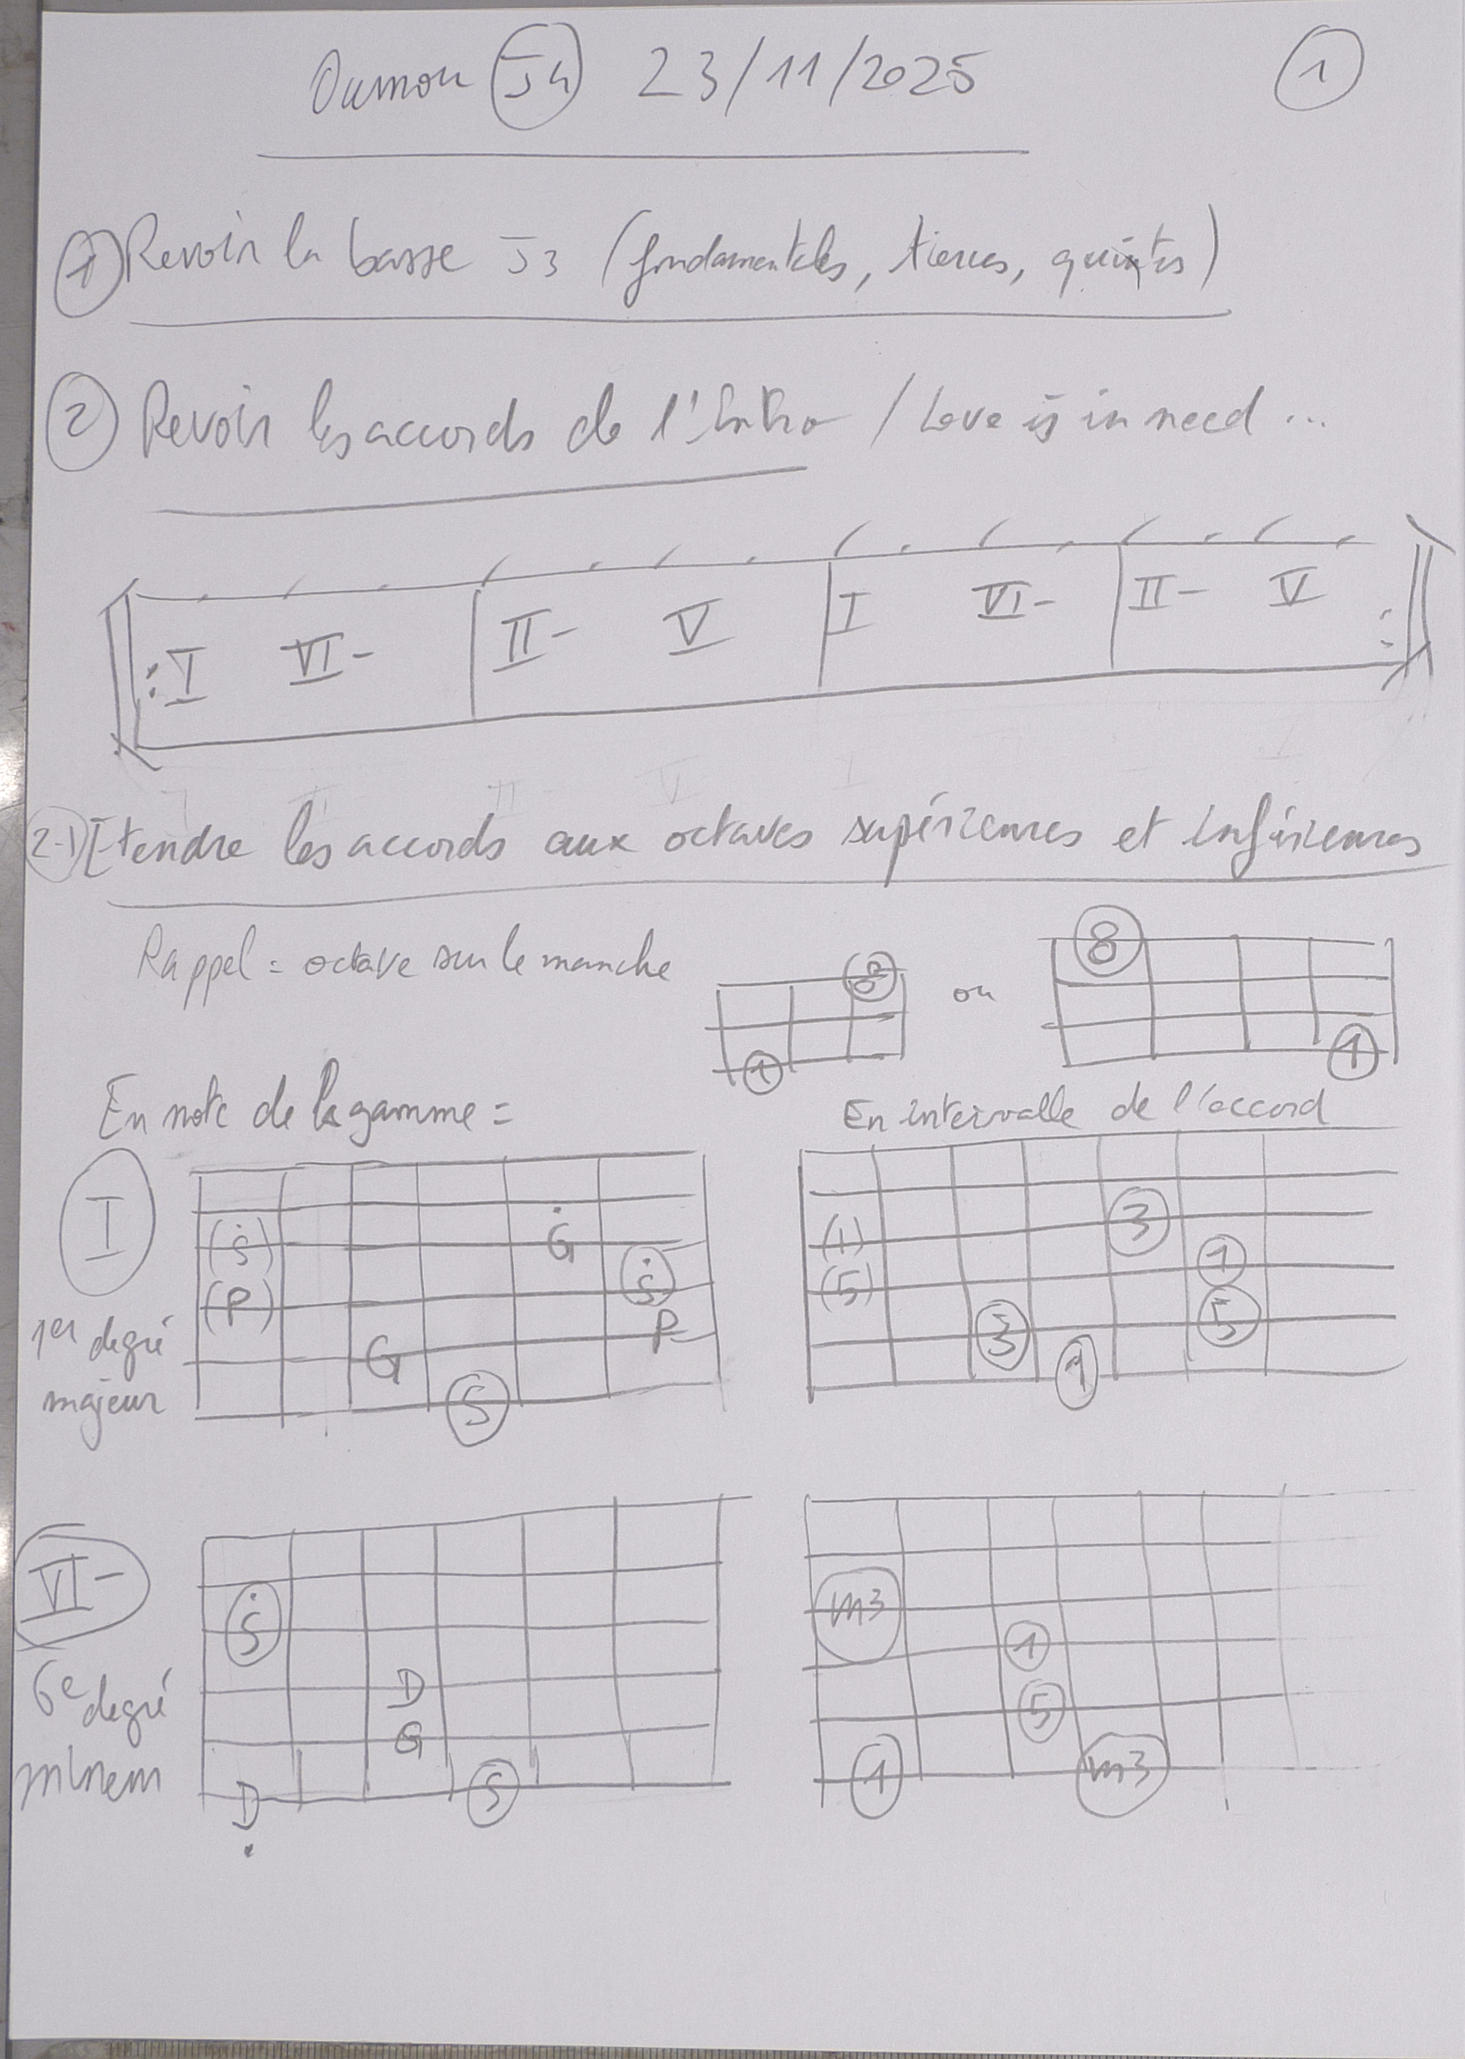 Oumou J4 23/11/2025 1
1 Revoir la basse J3 (fondamentales, tierces, quintes)
2 Revoir les accords de l'Intro / Love is in need ...
:I VI- II- V I VI- II- V :
2-1) Etendre les accords aux octaves supérieures et inférieures
Rappel = octave sur le manche 1 8 ou 8 1
En note de la gamme = En intervalle de l'accord
I
1er degré
majeur
(Ṡ) Ġ
(P) Ṡ
G P
S
(1) 3
(5) 1
3 5
1
VI-
6e degré
mineur
Ṡ
D
G
Ḍ S
m3
1
5
1 m3